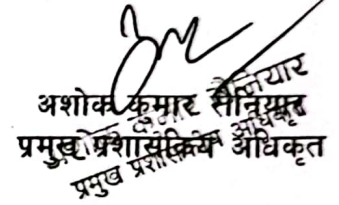 अशोक कुमार सैनियार
प्रमुख प्रशासकिय अधिकृत
अशोक कुमार सैनियार
प्रमुख प्रशासकिय अधिकृत